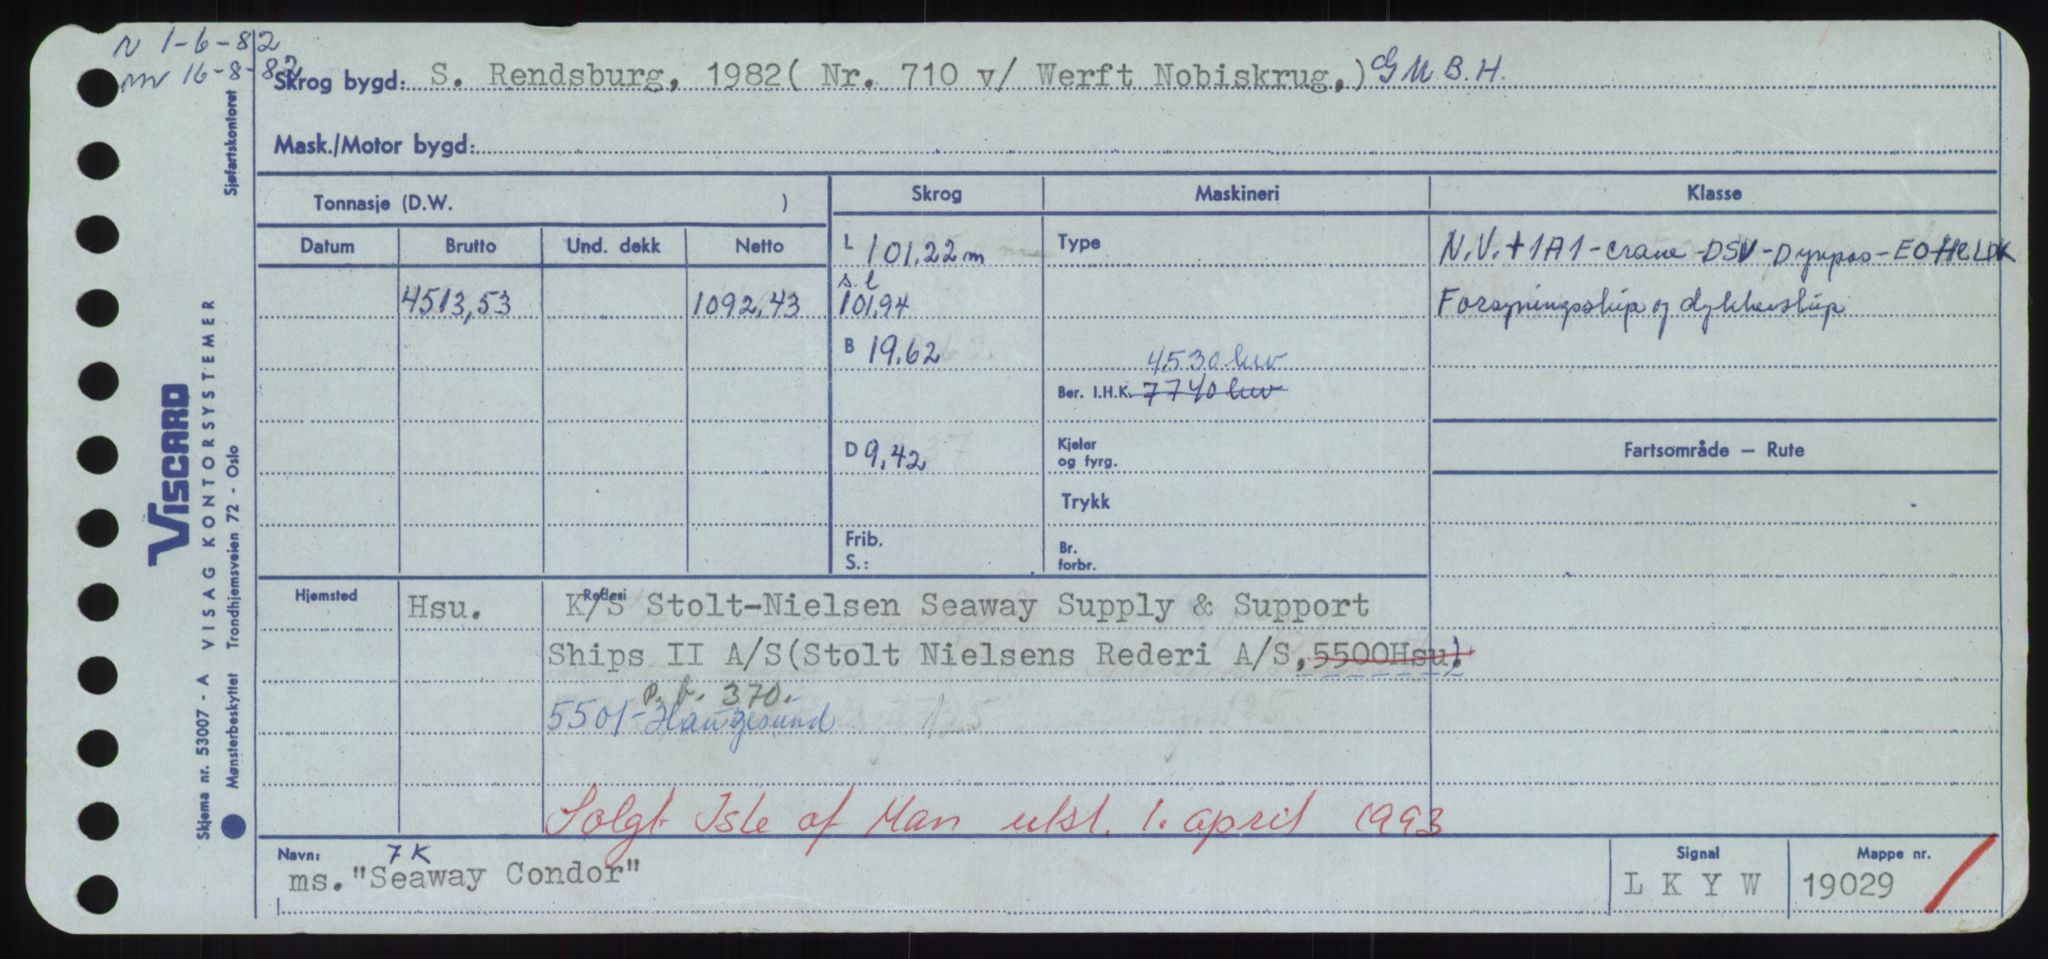 N 1-6-82
mv 16-8-82
Skrog bygd: S. Rendsburg, 1982( Nr. 710 v/ Werft Nobiskrug,) GMBH.
Mask./Motor bygd:
Tonnasje (D.W. )
Datum Brutto Und. dekk Netto
4513,53 1092,43
Skrog
L 101,22 m
s.l
101,94
B 19,62
D 9,42
Frib.
S.:
Maskineri
Type
4530 kw
Ber. I.H.K. 7740 kw
Kjelar
og fyrg.
Trykk
Br.
forbr.
Klasse
N.V.+1A1-crane-DSV-Dynpos-EO HELDK
Forsyningsskip og dykkerskip
Fartsområde — Rute
Hjemsted Hsu.
Rederi K/S Stolt-Nielsen Seaway Supply & Support
Ships II A/S(Stolt Nielsens Rederi A/S,5500Hsu).
p.b. 370.
5501-Haugesund
Solgt Isle of Man utsl. 1. april 1993
Navn: 7K
ms."Seaway Condor"
Signal
L K Y W
Mappe nr.
19029
VISCARD
VISAG KONTORSYSTEMER
Skjema nr. 53007 - A
Mønsterbeskyttet Trondhjemsveien 72 - Oslo
Sjøfartskontoret